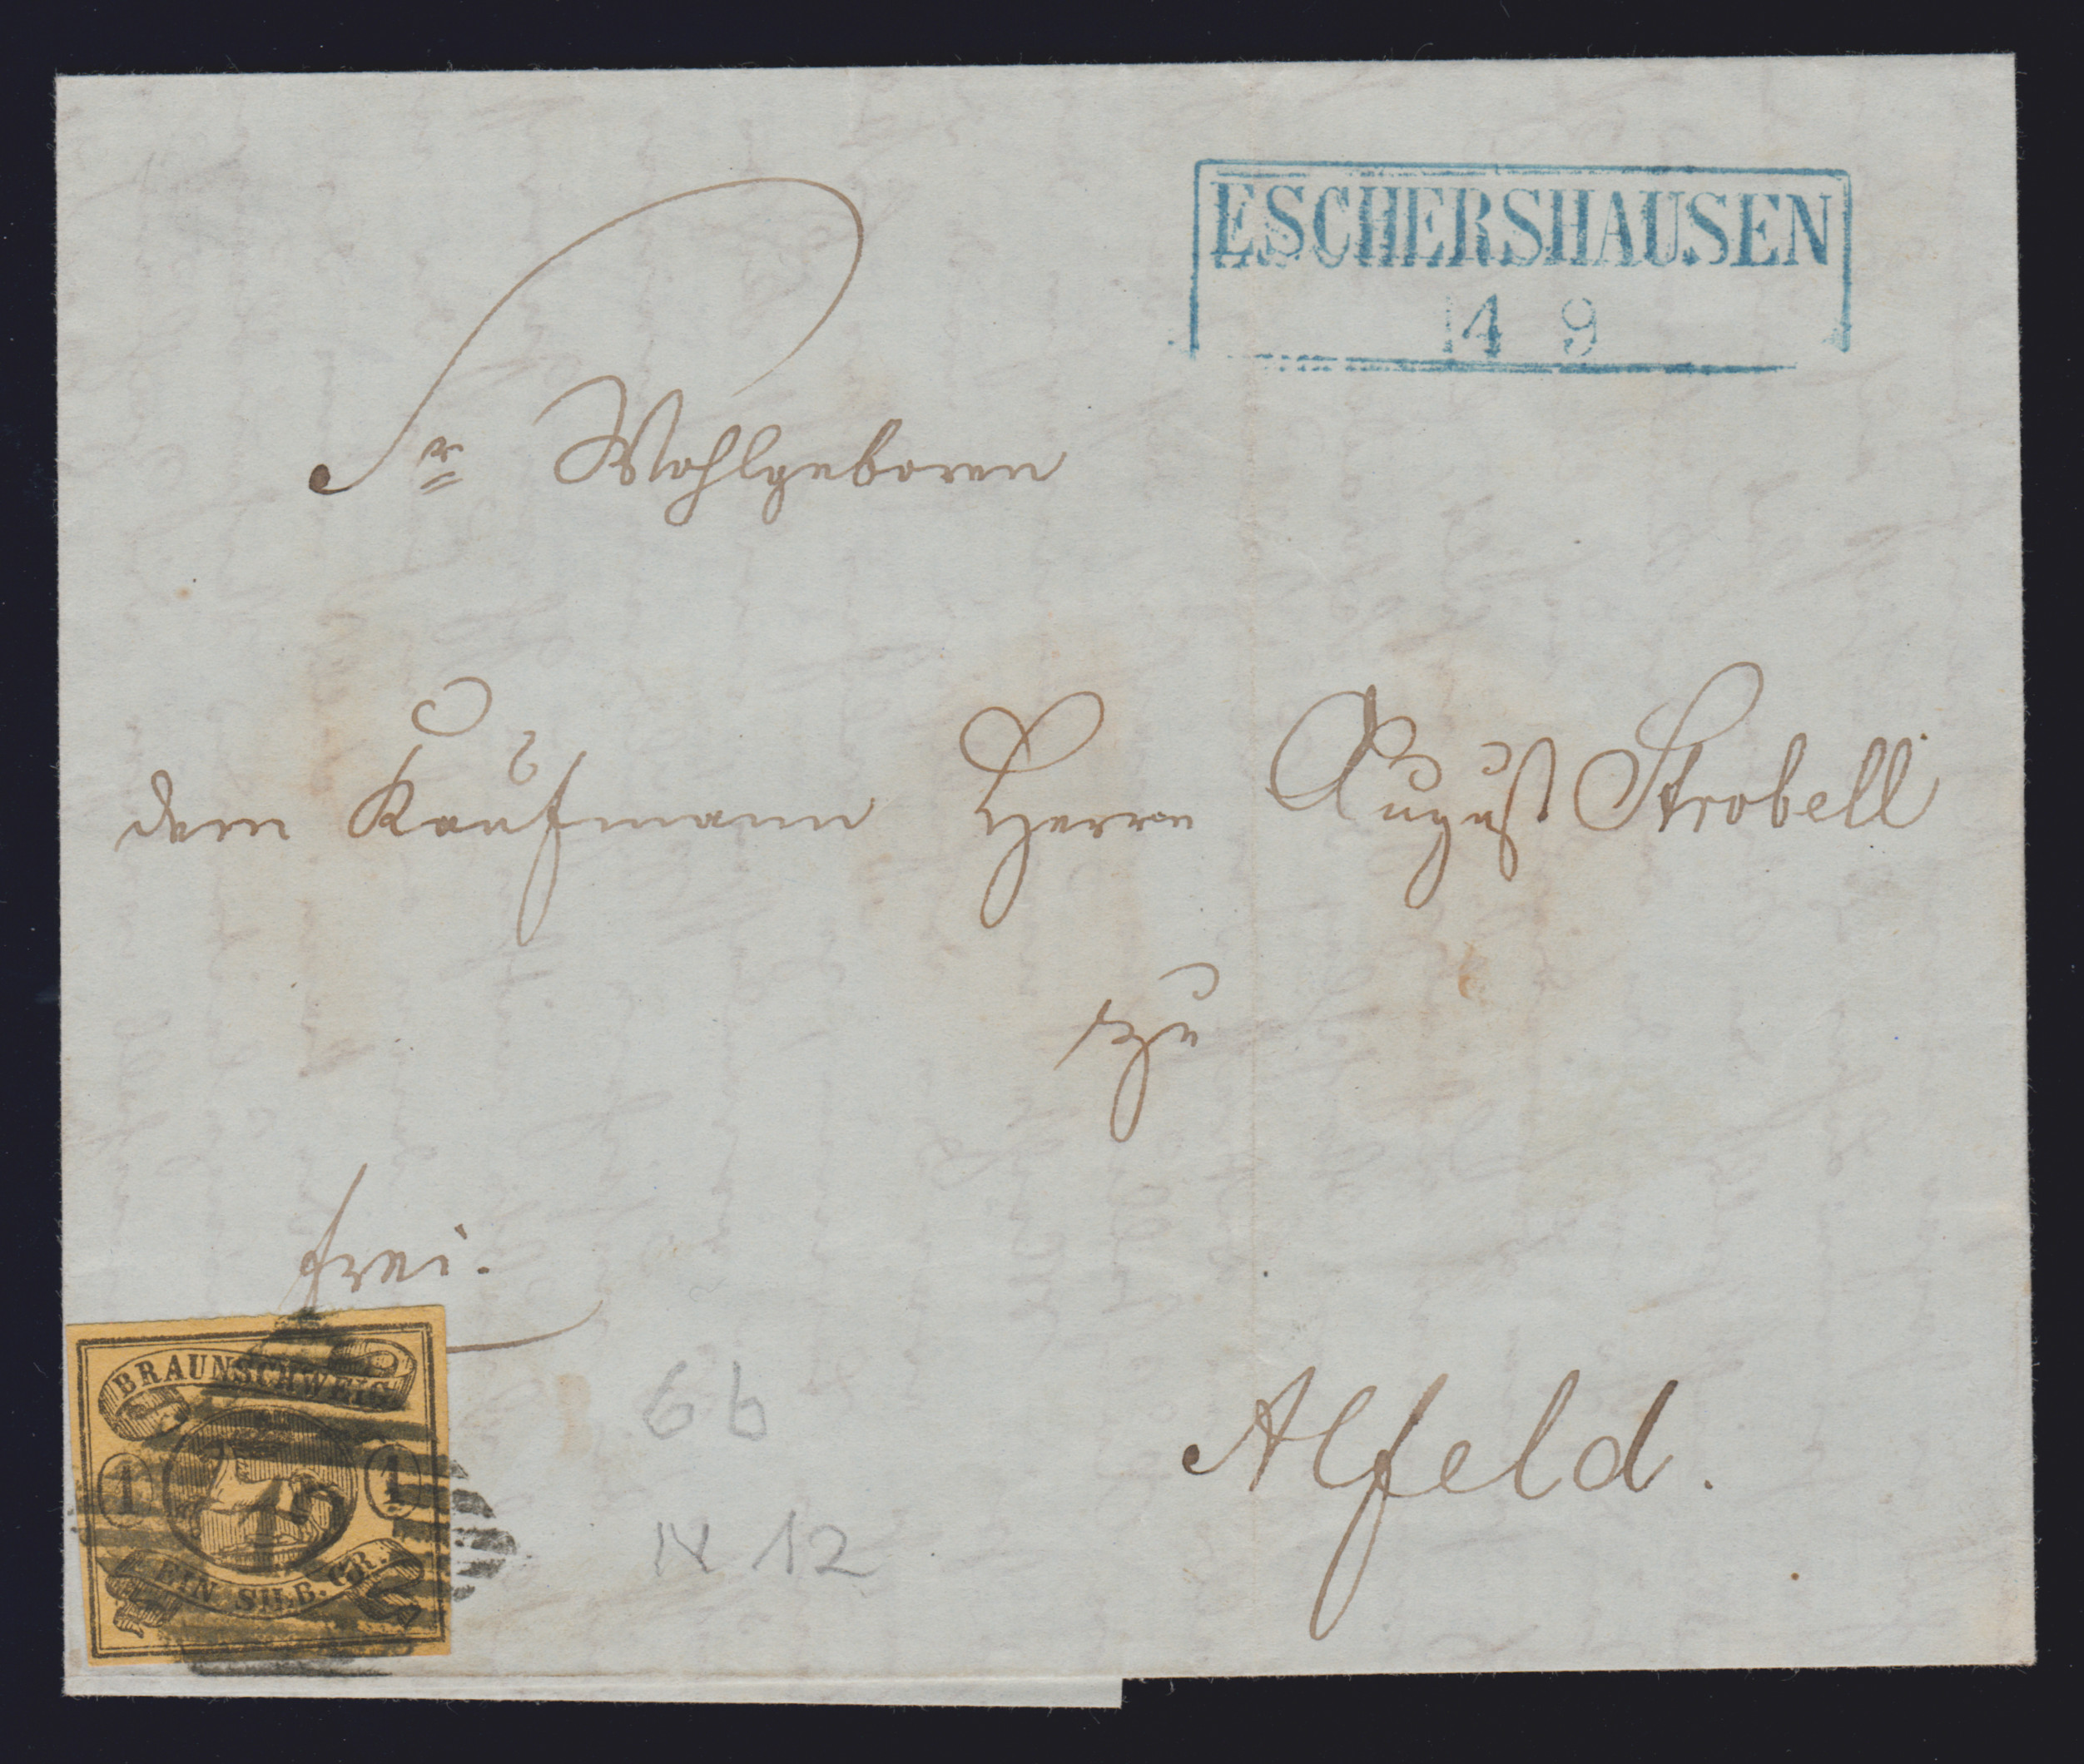 ESCHERSHAUSEN
14 9
Sr Wohlgeboren
dem Kaufmann Herrn August Strobell
zu
frei.
Alfeld.
BRAUNSCHWEIG
1 1
12
EIN SILB. GR.
6b
N 12